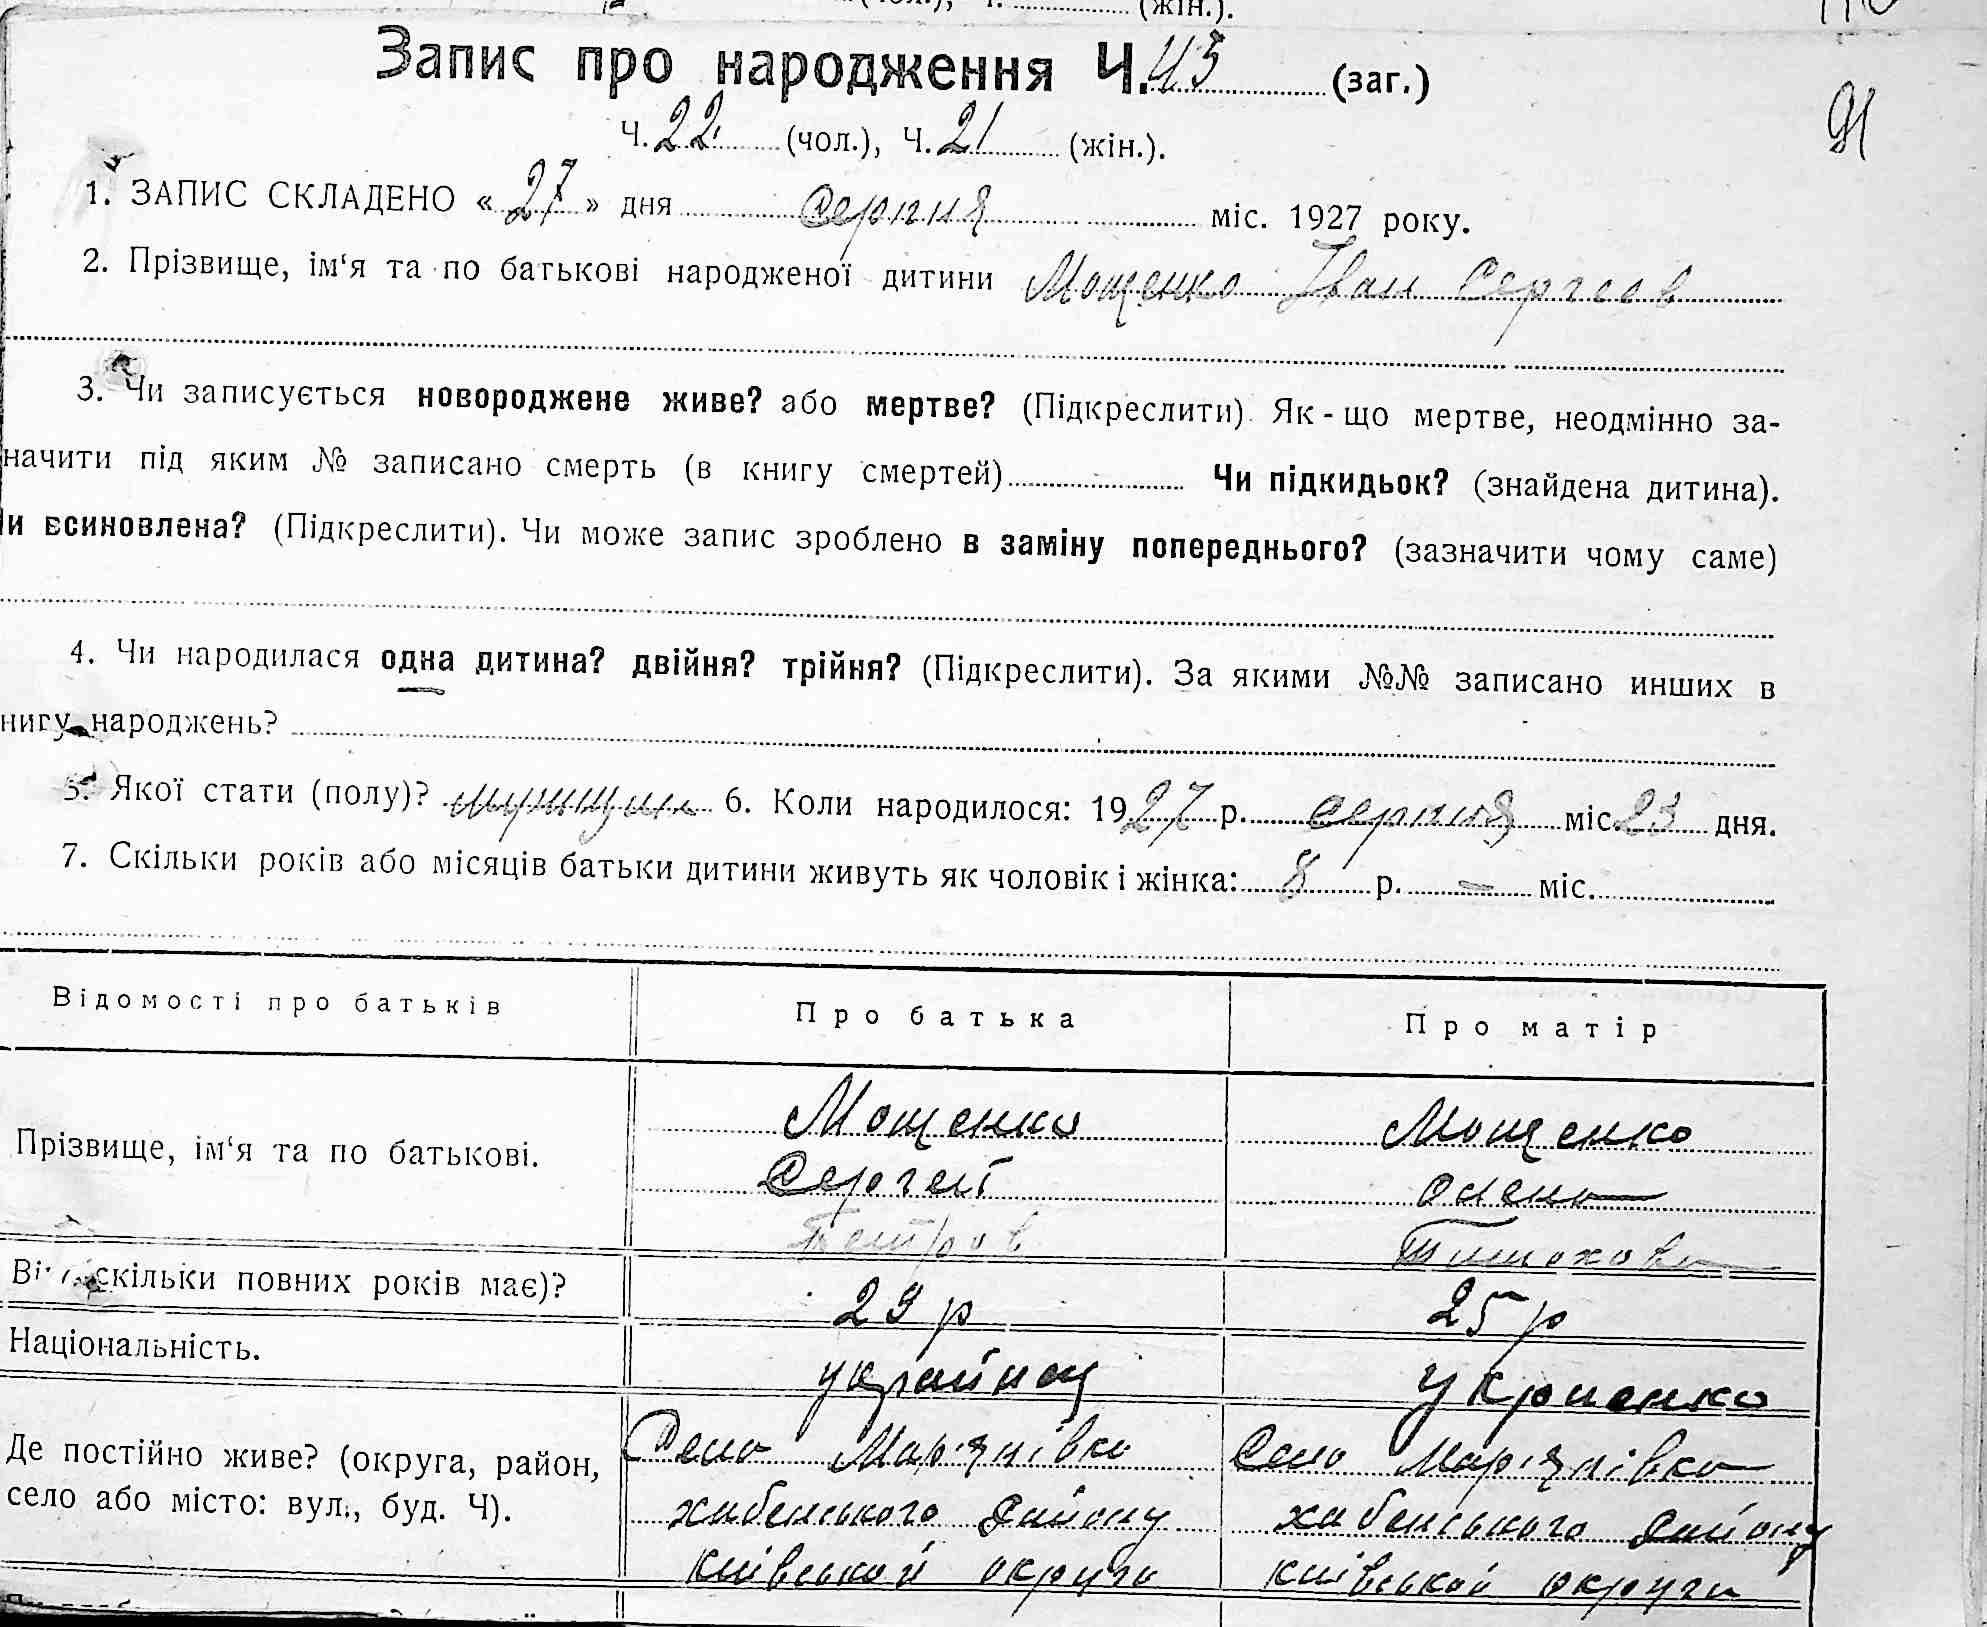 (чол.), Ч. (жін.).
Запис про народження Ч. 43 (заг.)
91
Ч. 22 (чол.), Ч. 21 (жін.).
1. ЗАПИС СКЛАДЕНО « 27 » дня серпня міс. 1927 року.
2. Прізвище, ім‘я та по батькові народженої дитини Мощенко Іван Сергеєв
3. Чи записується новороджене живе? або мертве? (Підкреслити). Як-що мертве, неодмінно за-
начити під яким № записано смерть (в книгу смертей) Чи підкидьок? (знайдена дитина).
и всиновлена? (Підкреслити). Чи може запис зроблено в заміну попереднього? (зазначити чому саме)
4. Чи народилася одна дитина? двійня? трійня? (Підкреслити). За якими №№ записано инших в
нигу народжень?
5. Якої стати (полу)? мущина 6. Коли народилося: 1927 р. серпня міс. 23 дня.
7. Скільки років або місяців батьки дитини живуть як чоловік і жінка: 8 р. – міс.
Відомості про батьків Про батька Про матір
Прізвище, ім‘я та по батькові.
Мощенко Мощенко
Сергей Олена
Петров Тимохова
(скільки повних років має)? 29 р 25 р
Національність. украйнец украенка
Де постійно живе? (округа, район,
село або місто: вул., буд. Ч).
Село Мар'янівка Село Мар'янівка
хабенського району хабенського району
київської округи київської округи